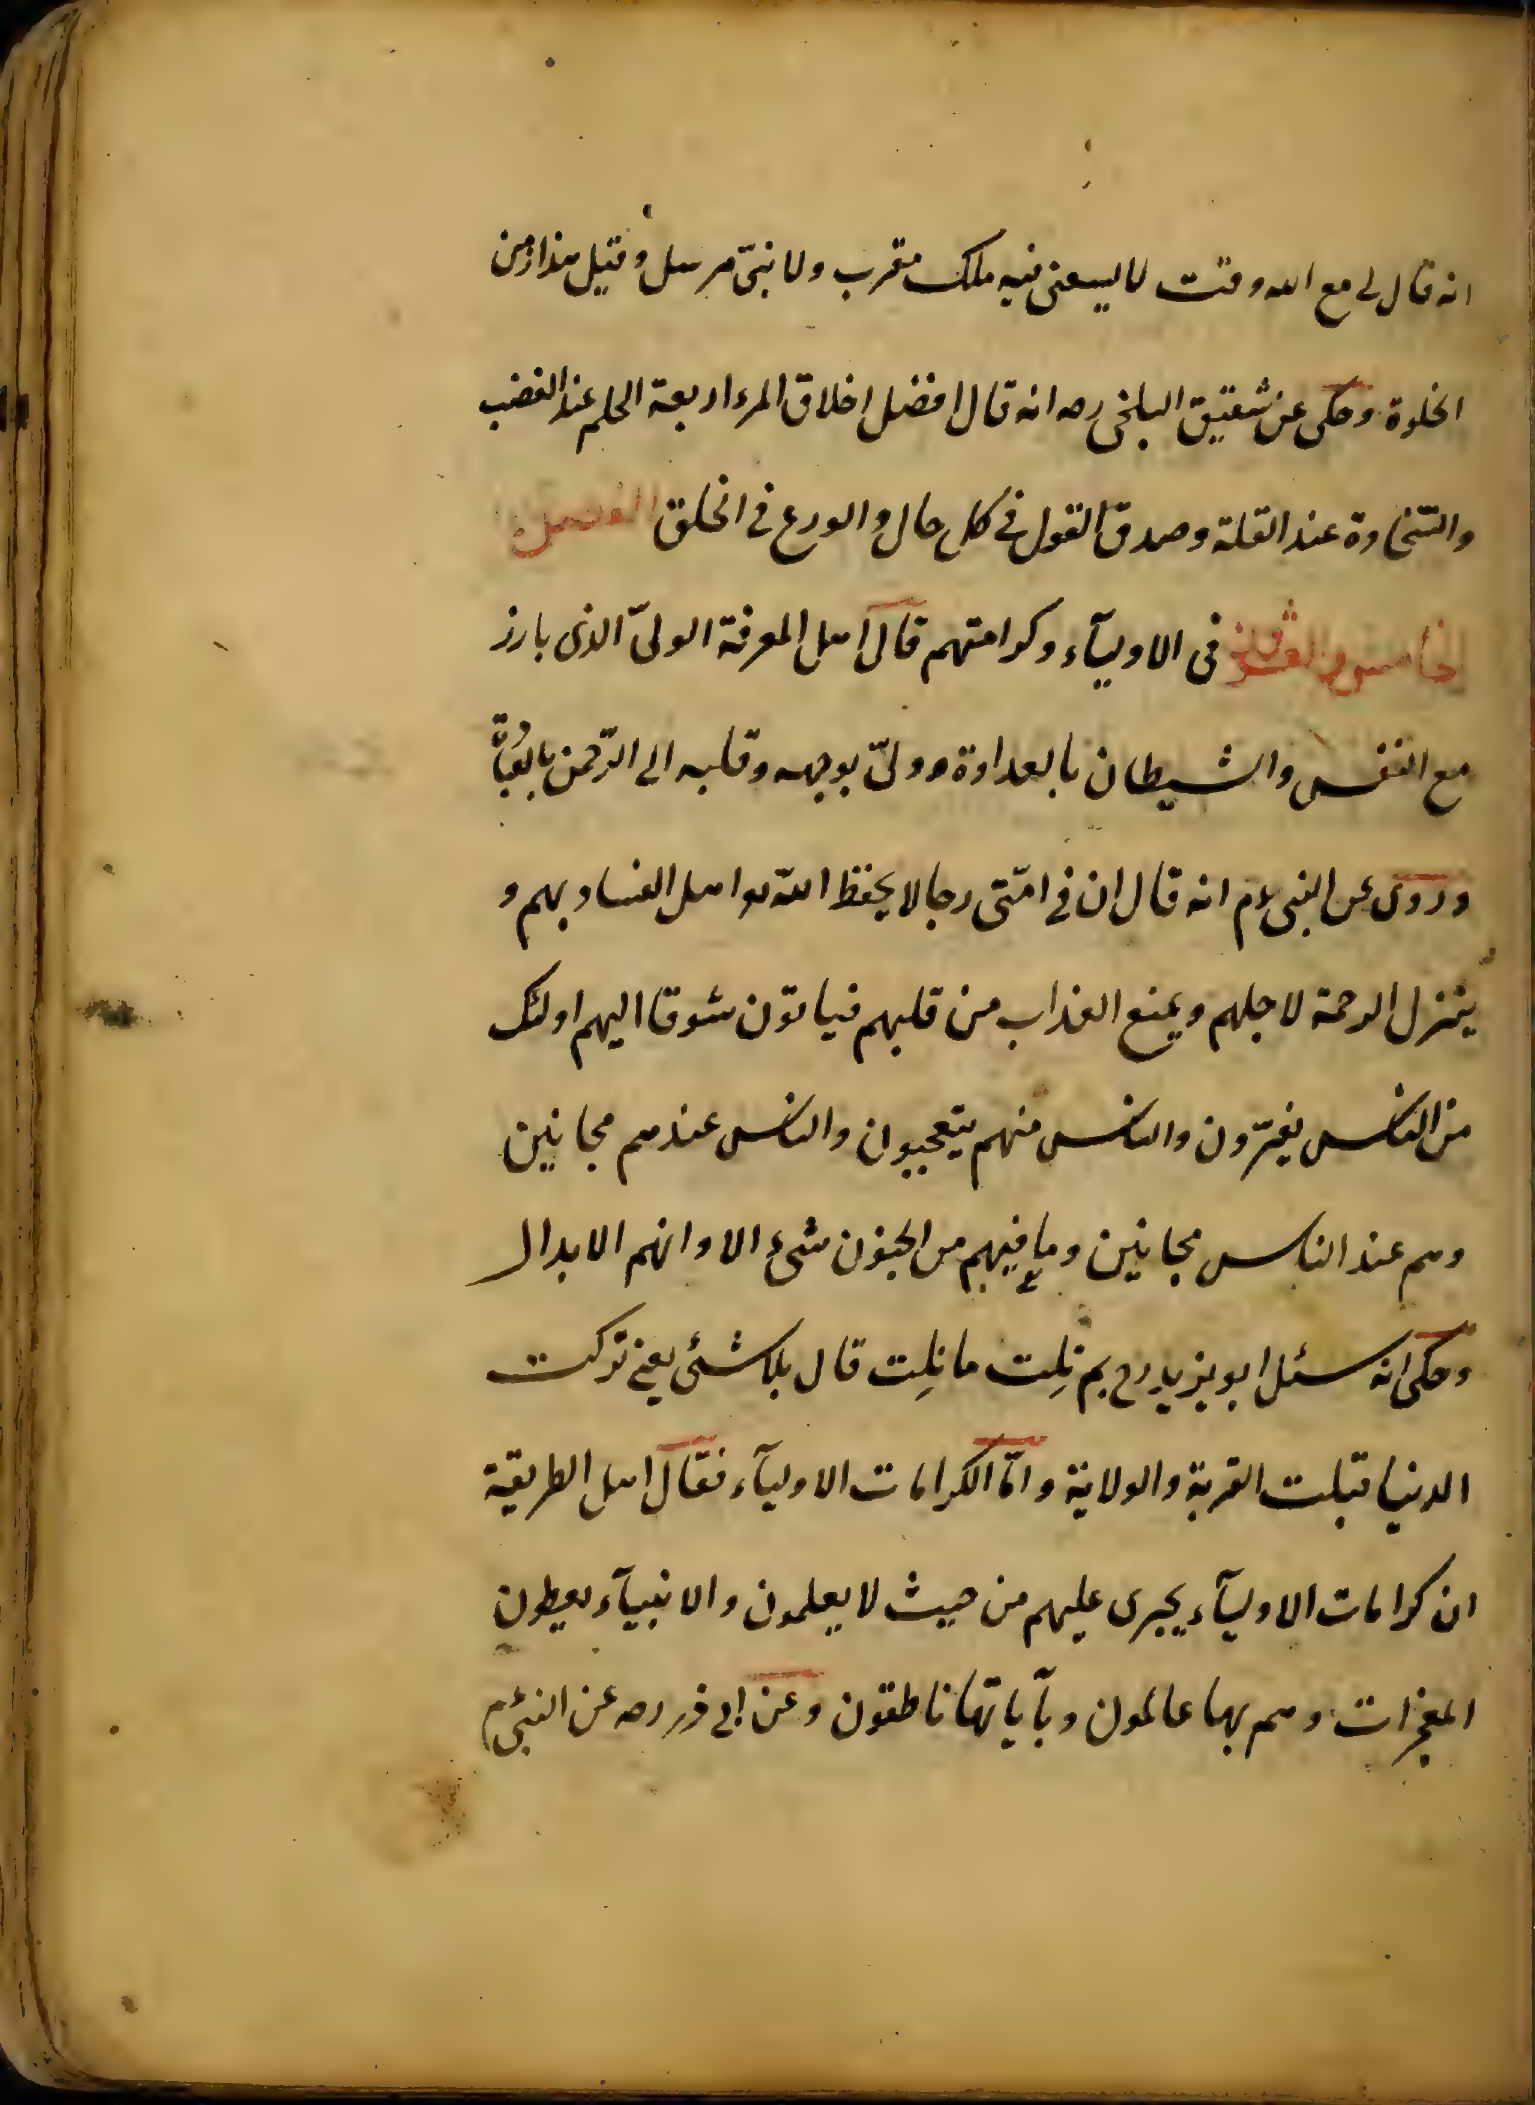 انه قال لى مع الله وقت لا يسعنى فيه ملك مقرب ولا نبىّ مرسل وقيل هذا من
الخلوة وحكى عن شقيق البلخى رحه انه قال افضل اخلاق المرء اربعة الحلم عند الغضب
والسّخاوة عند القلة وصدق القول فى كل حال والورع فى الخلق الفصل
الخامس والعشرون فى الاوليآء وكرامتهم قال اهل المعرفة الولىّ الذى بارز
مع النفس والشيطان بالعداوة وولىّ بوجهه وقلبه الى الرّحمن
وروى عن النبى عم انه قال ان فى امّتى رجالا يحفظ اللّه اهل الفساد بهم و
ينزل الرحمة لاجلهم ويمنع العذاب من قلبهم فياتون شوقا اليهم اولئك
من الناس يفرّون والناس منهم يتعجبون والناس عندهم مجانين
وهم عند الناس مجانين وما فيهم من الجنون شىء الا وانهم الابدال
وحكى انه سئل ابو يزيد رح بم نِلت ما نِلت قال بلا شئى يعنى تركت
الدنيا قبلت القربة والولاية وامّا الكرامات الاوليآء فقال اهل الطريقة
ان كرامات الاوليآء يجرى عليهم من حيث لا يعلمون والانبيآء يعطون
المعجزات وهم بها عالمون وبآياتها ناطقون وعن ابى ذر رحه عن النبى عم